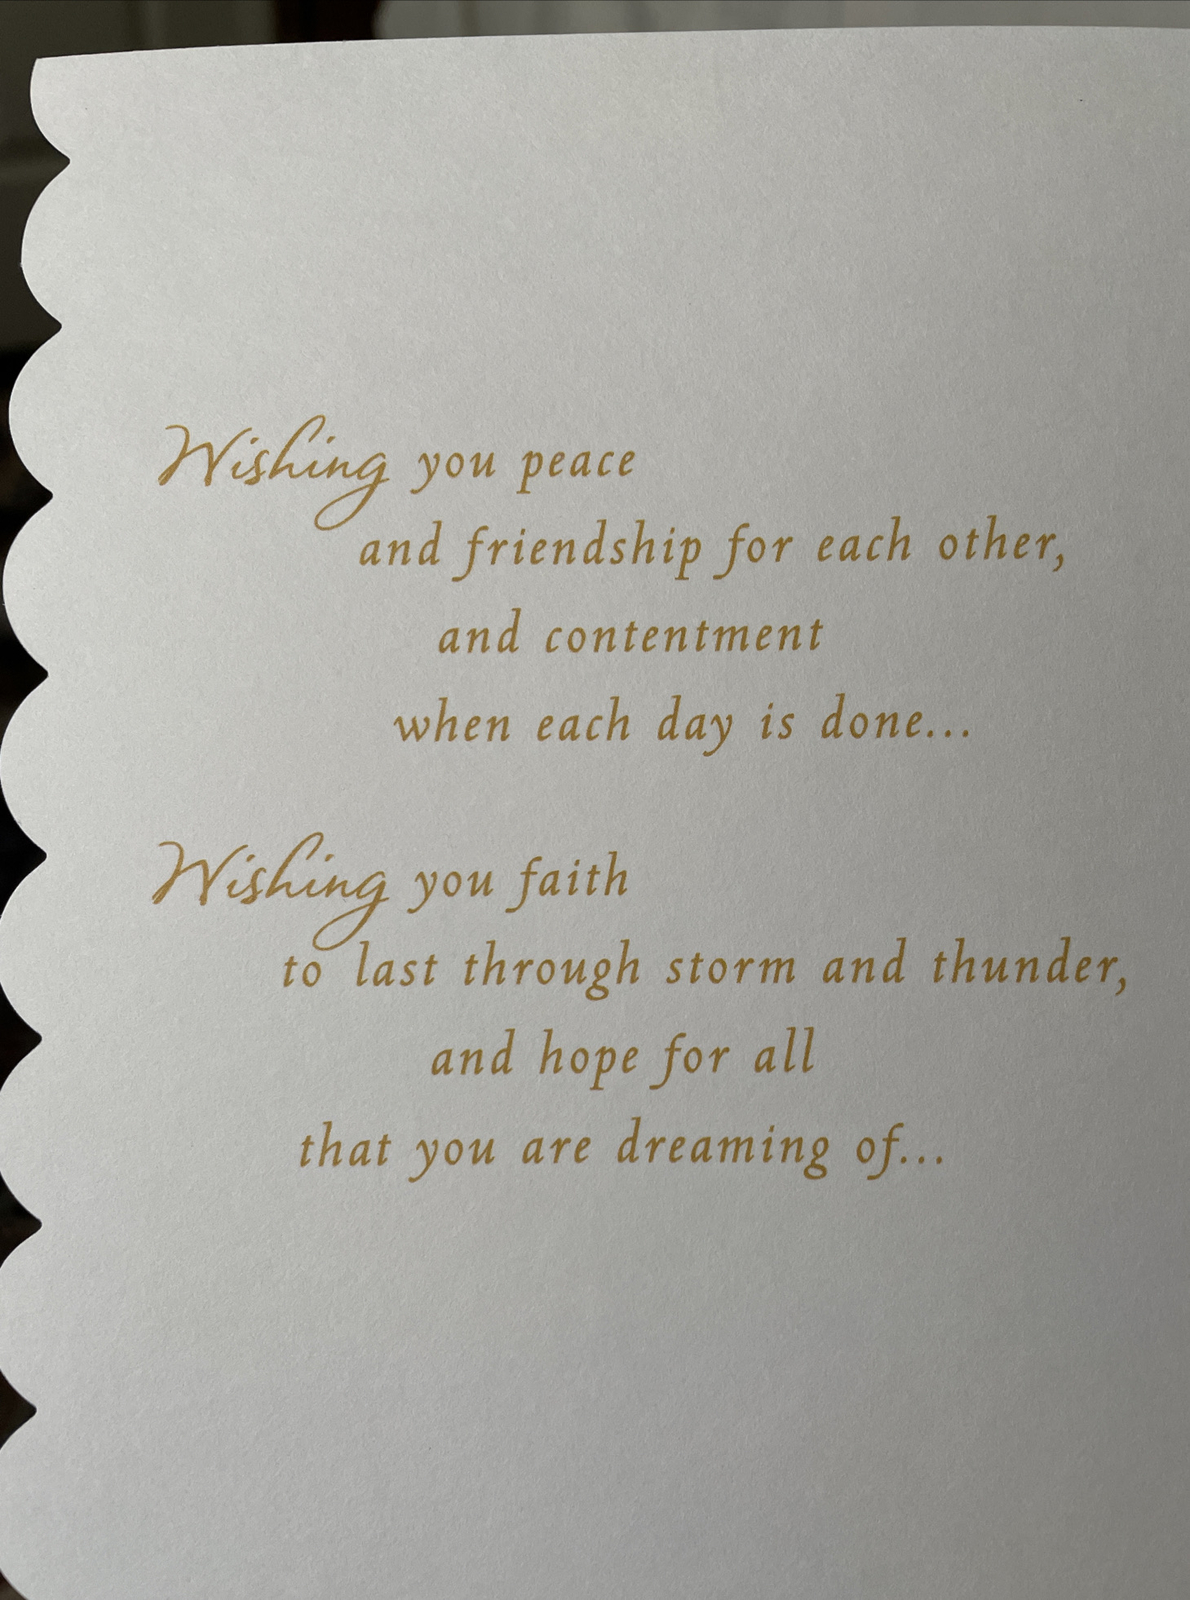 Wishing you peace
and friendship for each other,
and contentment
when each day is done...
Wishing you faith
to last through storm and thunder,
and hope for all
that you are dreaming of...